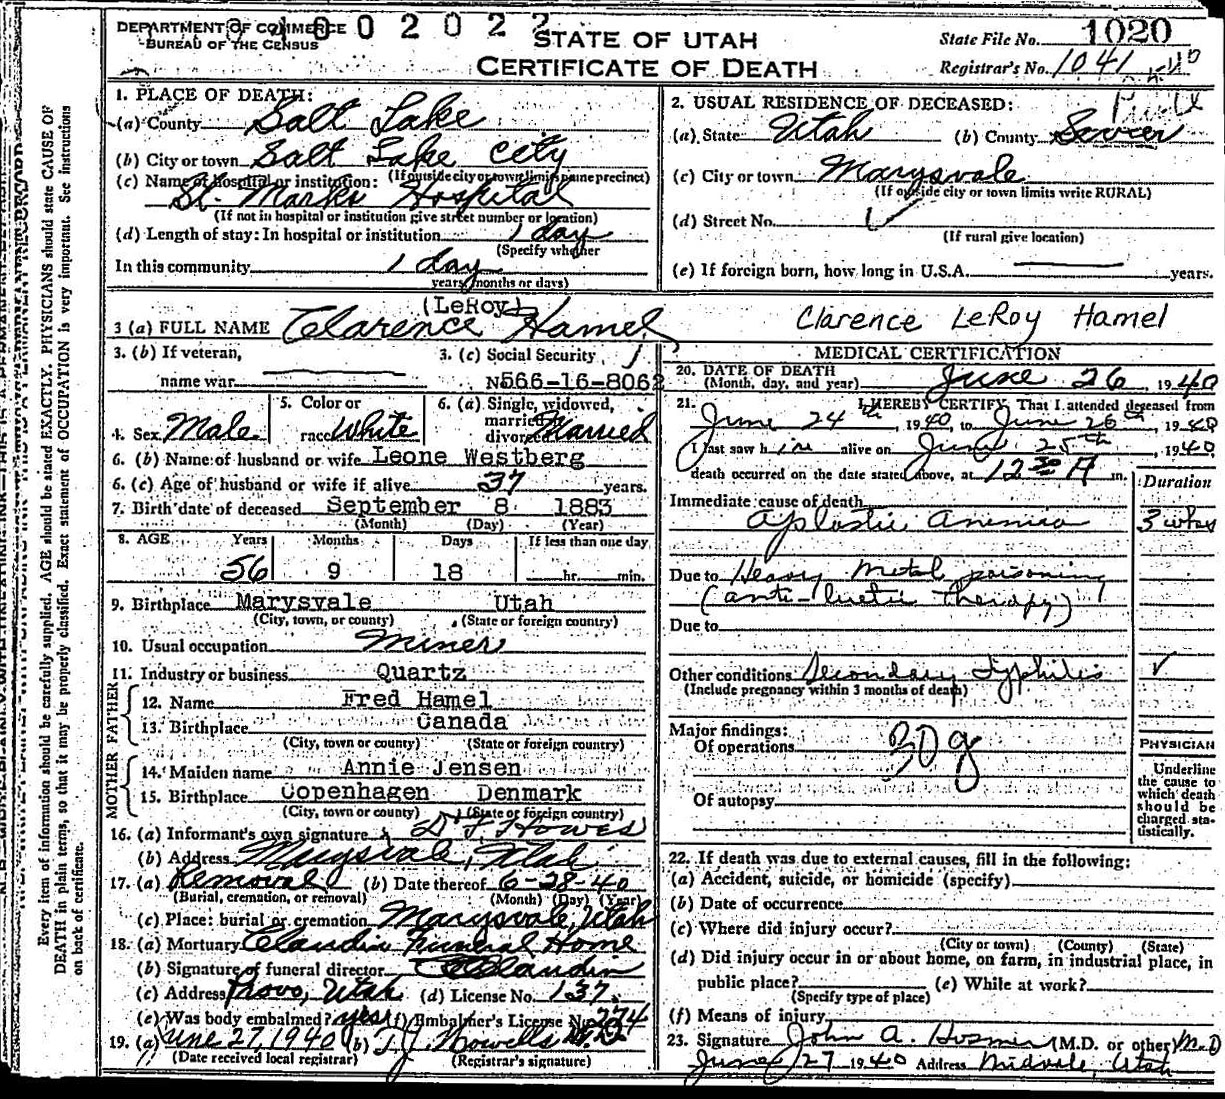 DEPARTMENT OF COMMERCE
BUREAU OF THE CENSUS
0 0 2 0 2 2
STATE OF UTAH
CERTIFICATE OF DEATH
State File No. 1020
Registrar's No. 1041
1. PLACE OF DEATH:
(a) County Salt Lake
(b) City or town Salt Lake City
(If outside city or town limits name precinct)
(c) Name of hospital or institution:
St. Marks Hospital
(If not in hospital or institution give street number or location)
(d) Length of stay: In hospital or institution 1 day
(Specify whether
In this community 1 day
years, months or days)
2. USUAL RESIDENCE OF DECEASED:
(a) State Utah (b) County Sevier
(c) City or town Marysvale
(If outside city or town limits write RURAL)
(d) Street No.
(If rural give location)
(e) If foreign born, how long in U.S.A. years.
(LeRoy)
3 (a) FULL NAME Clarence Hamel
Clarence LeRoy Hamel
3. (b) If veteran,
name war
3. (c) Social Security
No. 566-16-8062
4. Sex Male
5. Color or
race White
6. (a) Single, widowed,
married,
divorced Married
6. (b) Name of husband or wife Leone Westberg
6. (c) Age of husband or wife if alive 37 years.
7. Birth date of deceased September 8 1883
(Month) (Day) (Year)
8. AGE Years Months Days If less than one day
56 9 18 hr. min.
9. Birthplace Marysvale Utah
(City, town, or county) (State or foreign country)
10. Usual occupation Miner
11. Industry or business Quartz
FATHER
12. Name Fred Hamel
13. Birthplace Canada
(City, town or county) (State or foreign country)
MOTHER
14. Maiden name Annie Jensen
15. Birthplace Copenhagen Denmark
(City, town or county) (State or foreign country)
16. (a) Informant's own signature D F Howes
(b) Address Marysvale, Utah
17. (a) Removal (b) Date thereof 6-28-40
(Burial, cremation, or removal) (Month) (Day) (Year)
(c) Place: burial or cremation Marysvale, Utah
18. (a) Mortuary Claudin Funeral Home
(b) Signature of funeral director Claudin
(c) Address Provo, Utah (d) License No. 137
(e) Was body embalmed? yes (f) Embalmer's License No. 274
19. (a) June 27, 1940 (b) T. J. Howells M.D.
(Date received local registrar) (Registrar's signature)
MEDICAL CERTIFICATION
20. DATE OF DEATH
(Month, day, and year) June 26, 1940
21. I HEREBY CERTIFY, That I attended deceased from
June 24th, 1940, to June 26th, 1940
I last saw him alive on June 25th, 1940
death occurred on the date stated above, at 12 30 A m.
Duration
Immediate cause of death
Aplastic Anemia 3 wks
Due to Heavy Metal poisoning
(anti-luetic therapy)
Due to
Other conditions Secondary Syphilis
(Include pregnancy within 3 months of death)
Major findings:
Of operations
30g
Of autopsy
PHYSICIAN
Underline
the cause to
which death
should be
charged sta-
tistically.
22. If death was due to external causes, fill in the following:
(a) Accident, suicide, or homicide (specify)
(b) Date of occurrence
(c) Where did injury occur?
(City or town) (County) (State)
(d) Did injury occur in or about home, on farm, in industrial place, in
public place? (e) While at work?
(Specify type of place)
(f) Means of injury
23. Signature John A. Hosmer (M.D. or other) M.D
June 27 1940 Address Midvale, Utah
Every item of information should be carefully supplied. AGE should be stated EXACTLY. PHYSICIANS should state CAUSE OF
DEATH in plain terms, so that it may be properly classified. Exact statement of OCCUPATION is very important. See instructions
on back of certificate.